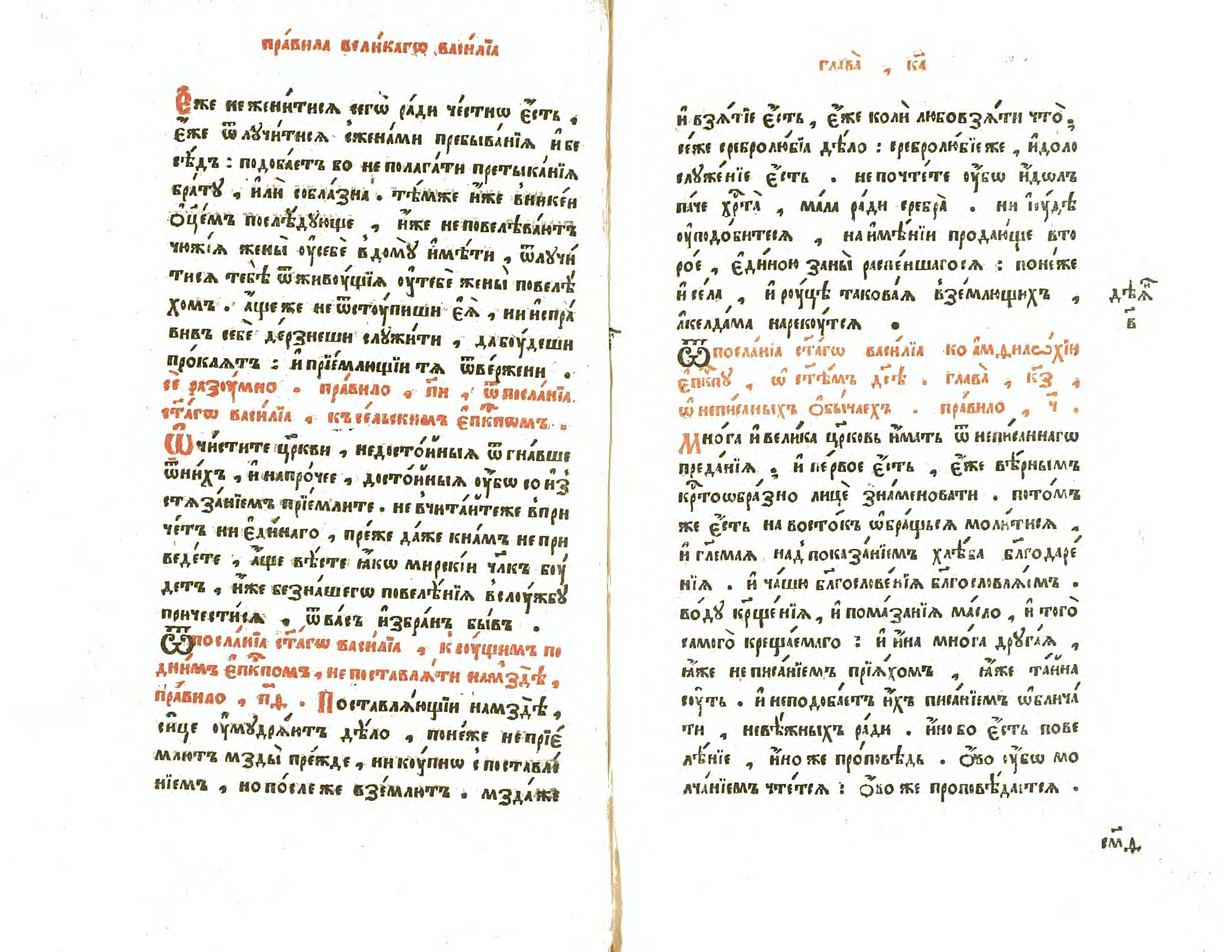 пра́вила вели́кагѡ васи́лїа
Е҆́же нежени́тисѧ сегѡ̀ ра́ди че́стнѡ є҆́сть ,
є҆́же ѿлꙋчи́тисѧ сжена́ми пребыва́нїѧ и҆бе
сѣ́дъ : подоба́етъ бо неполага́ти претыка́нїѧ
бра́тꙋ , и҆лѝ собла́зна . тѣ́мже и҆́же вникеи
ѻ҆ц҃е́мъ послѣ́дꙋюще , и҆́же неповелѣва́ютъ
чю́жїѧ жены̀ ᲂу҆себѐ вдомꙋ̀ и҆мѣ́ти , ѿлꙋчи́
тисѧ тебѣ̀ ѿживꙋ́щїѧ ᲂу҆тебѐ жены̀ повелѣ́
хомъ . а҆́щеже неѿстꙋ́пиши є҆ѧ̀ , нииспра́
вивъ себѐ де́рзнеши слꙋжи́ти , дабꙋ́деши
про́клѧтъ : и҆прїе́млющїи тѧ ѿве́ржени .
сѐ разꙋ́мно . пра́вило , п҃и , ѿпосла́нїѧ
ст҃а́гѡ васи́лїа , ксе́льскимъ є҆пⷭ҇кпѡмъ .
Ѡ҆чи́стите цр҃кви , недосто́йныѧ ѿгна́вше
ѿни́хъ , и҆напро́чее , досто́йныѧ ᲂу҆́бѡ соиз̾
стѧза́нїемъ прїе́млите . невчита́йтеже впри
че́тъ ниеди́наго , пре́же да́же кна́мъ непри
веде́те , а҆́ще вѣ́сте ꙗ҆́кѡ мирскі́и чл҃къ бꙋ́
детъ , и҆́же безна́шегѡ повелѣ́нїѧ вслꙋ́жбꙋ
причести́сѧ , ѿва́съ и҆збра́нъ бы́въ .
Ѿпосла́нїа ст҃а́гѡ васи́лїа , ксꙋ́щимъ по
дни́мъ є҆пⷭ҇кпомъ , непоставлѧ́ти намздѣ̀ ,
пра́вило , п҃ѳ . Поставлѧ́ющїи намздѣ̀ ,
си́це ᲂу҆мꙋдрѧ́ютъ дѣ́ло , поне́же непрїе́
млютъ мзды̀ пре́жде , никꙋ́пнѡ споставле́
нїемъ , нопо́слеже взе́млютъ . мздаже
глава̀ , к҃а
и҆взѧ́тїе є҆́сть , є҆́же коли̑ любовзѧ́ти что̀ ,
се́же сребролю́бїа дѣ́ло : сребролю́бїеже , и҆́доло
слꙋже́нїе є҆́сть . непочте́те ᲂу҆́бѡ и҆́дѡлъ
па́че хрⷭ҇та̀ , ма́ла ра́ди сребра̀ . ни і҆ꙋ́дѣ
ᲂу҆подо́битесѧ , наимѣ́нїи продаю́ще вто
ро́е , є҆ди́ною заны̀ распе́ншагосѧ : поне́же
и҆се́ла , и҆рꙋ́цѣ такова́ѧ взе́млющихъ ,
а҆келда́ма нареку́тсѧ .
дѣѧ҃
в҃
Ѿпосла́нїа ст҃а́гѡ васи́лїа ко амфило́хїю
є҆пⷭ҇кпꙋ , ѡ҆ ст҃ѣ́мъ дс҃ѣ . глава̀ , к҃з ,
ѡ҆неписаныхъ ѻ҆бы́чаехъ . пра́вило , ч҃ .
Мно́га и҆вели́ка цр҃ковь и҆́мать ѿ непи́саннагѡ
преда́нїѧ , и҆ пе́рвое є҆́сть , є҆́же вѣ́рнымъ
крⷭ҇тоѡбра́зно лицѐ зна́меновати . пото́мъ
же є҆́сть на восто́къ ѡ҆бра́щьсѧ моли́тисѧ ,
и҆ гл҃емаѧ над̾показа́нїемъ хлѣ́ба бл҃годаре́
нїѧ . и҆ча́шю бл҃гослове́нїѧ бл҃гословлѧ́емъ .
во́дꙋ крⷳ҇ще́нїѧ , и҆пома́занїѧ ма́сло , и҆того̀
самого̀ креща́емаго : и҆и́на мно́га дрꙋга́ѧ ,
ꙗ҆́же неписа́нїемъ прїѧ́хомъ , ꙗ҆́же та́йна
сꙋ́ть . и҆неподоба́етъ и҆́хъ писа́нїемъ ѡ҆блича́
ти , невѣ́жныхъ ра́ди . и҆́нобо є҆́сть пове
лѣ́нїе , и҆́ноже про́повѣдь . ѻ҆́во ᲂу҆́бѡ мо
лча́нїемъ чте́тсѧ : ѻ҆́воже проповѣ́даетсѧ .
см҃ѳ